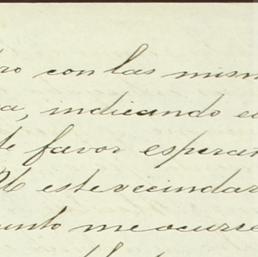 ro con las mism
a, indicando e
te favor espera
este vecindar
unto me ocurre